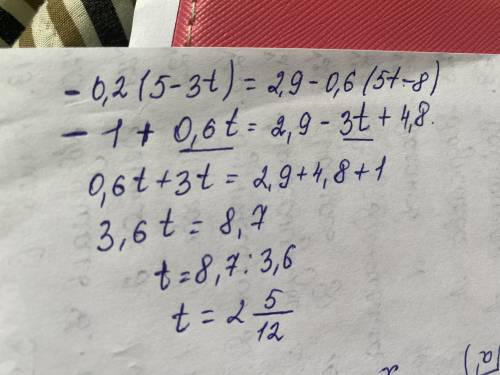 - 0,2(5-3t) = 2,9 - 0,6(5t-8)
- 1 + 0,6t = 2,9 - 3t + 4,8.
0,6t + 3t = 2,9 + 4,8 + 1
3,6t = 8,7
t = 8,7 : 3,6
t = 2 5/12